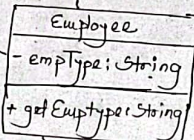 Employee
- empType: String
+ getEmptype: String